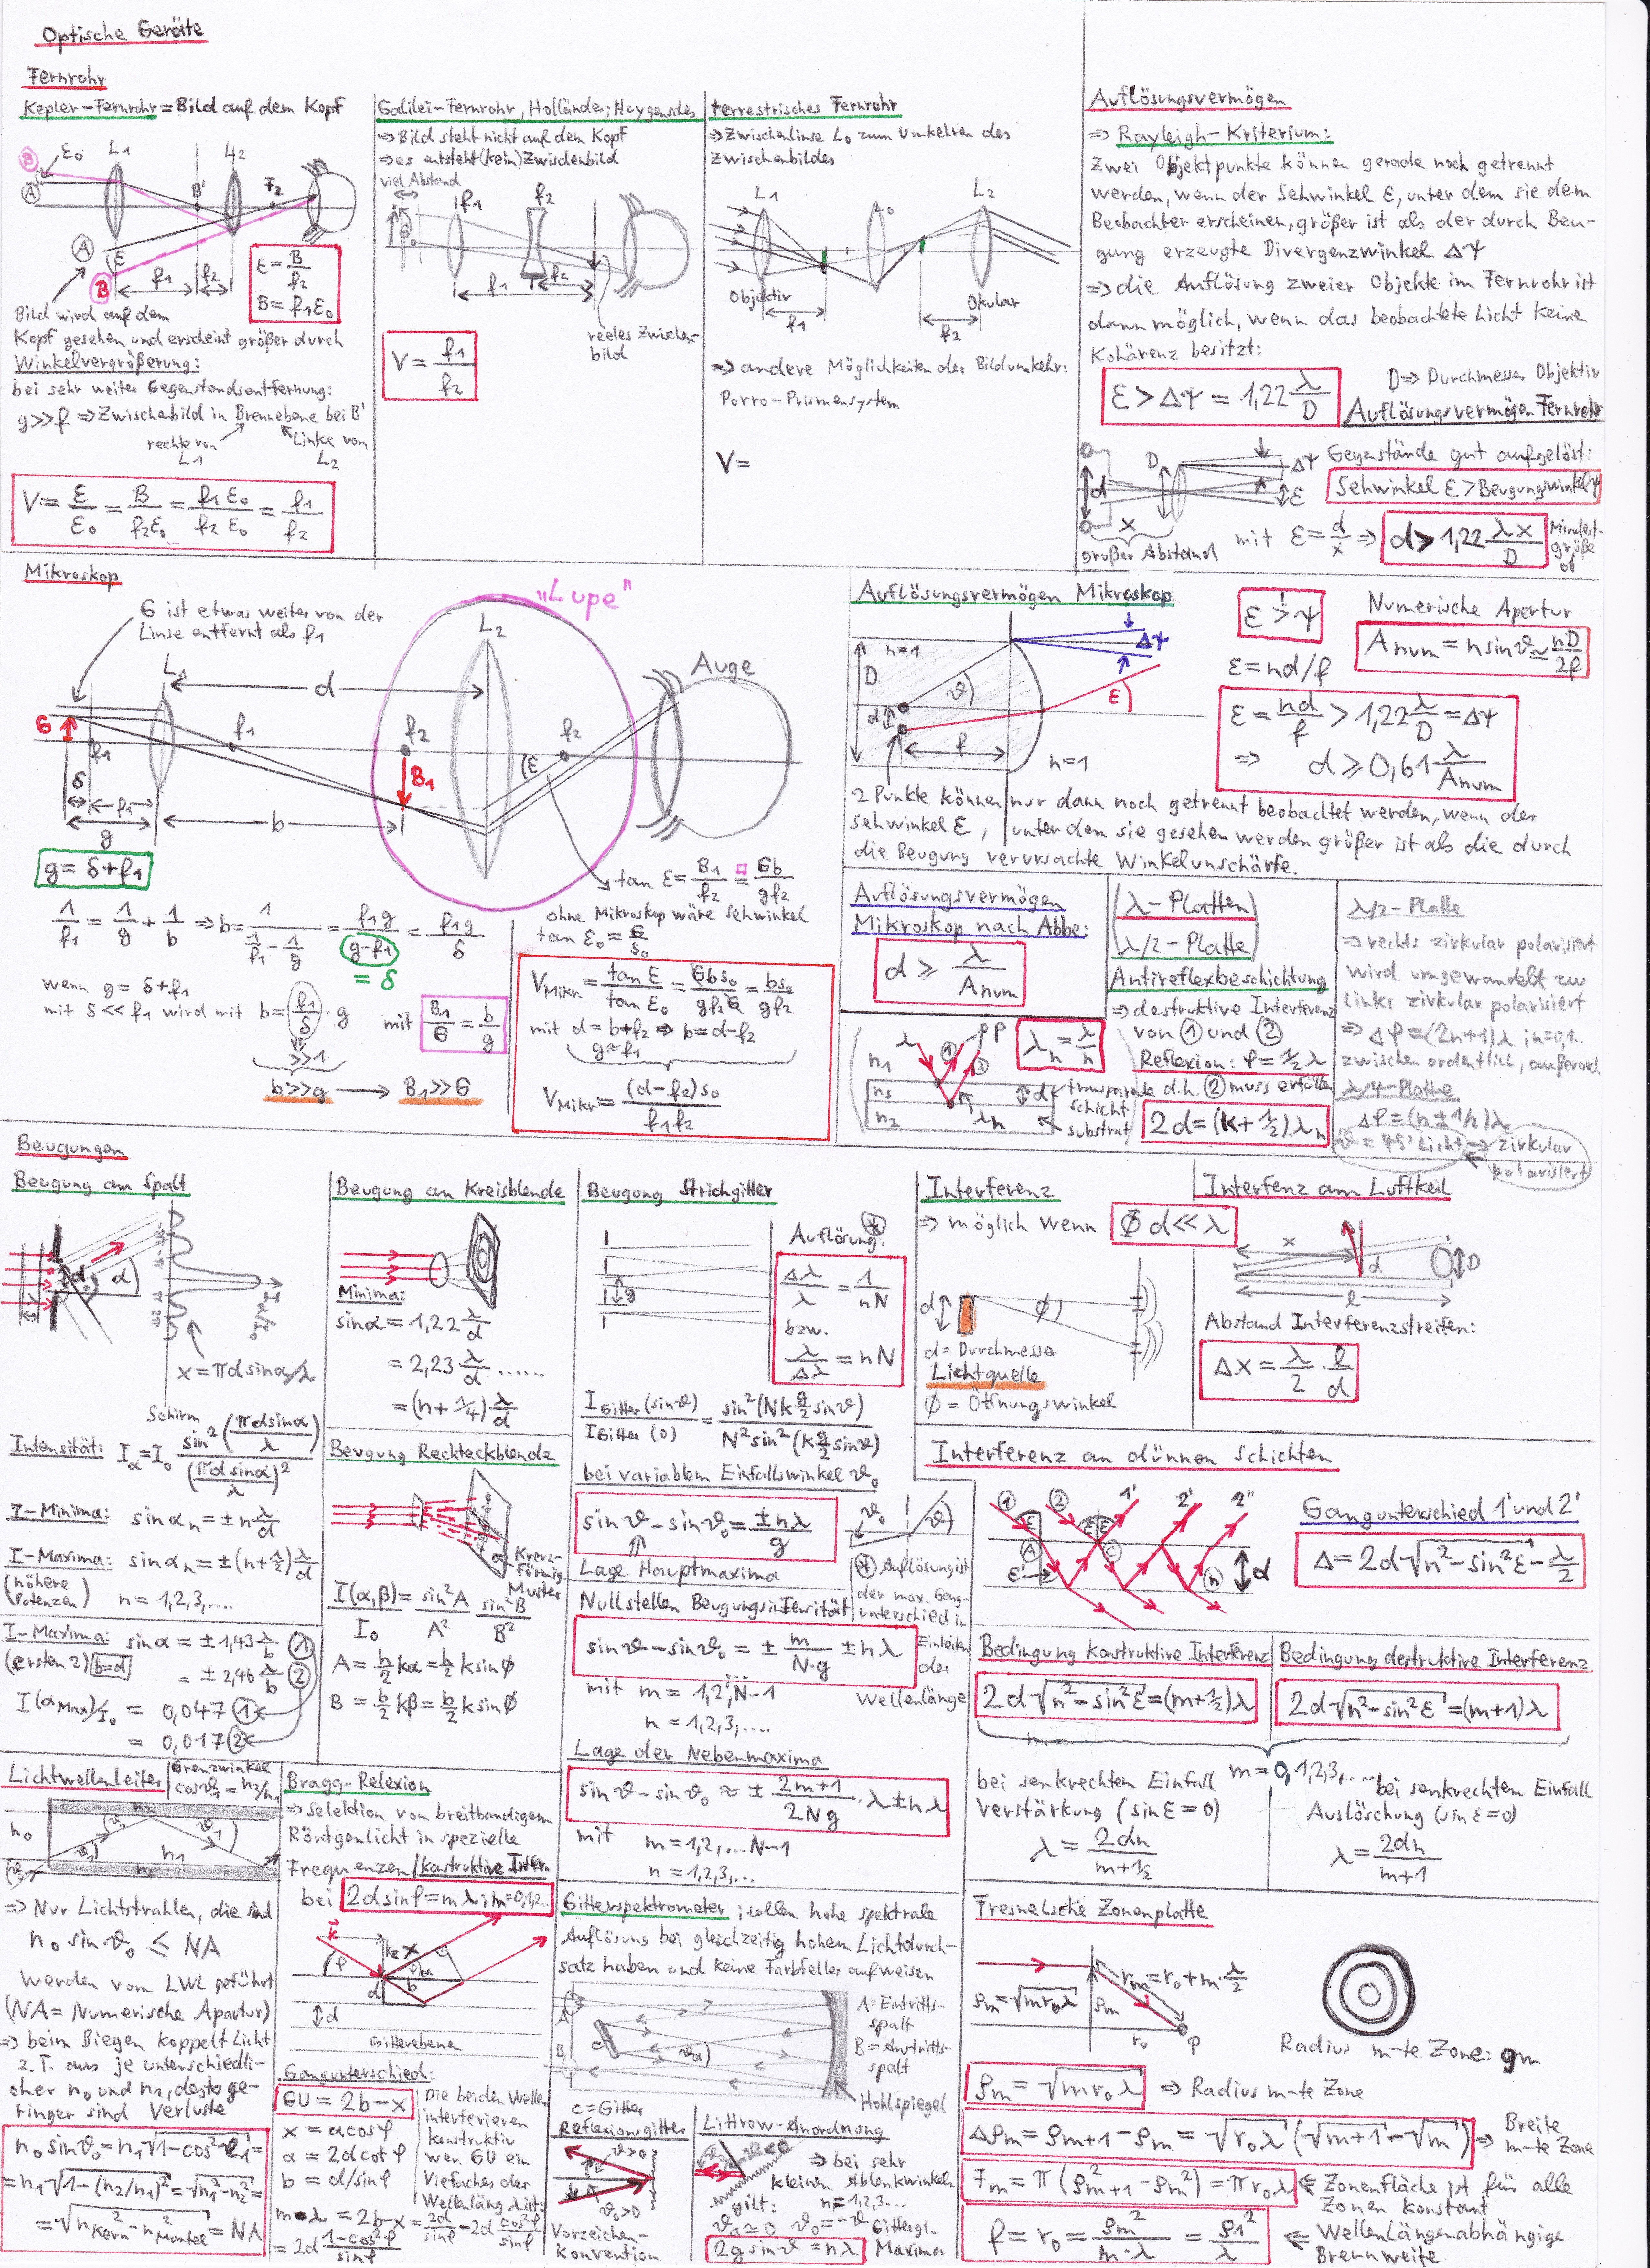 Optische Geräte
Fernrohr
Kepler-Fernrohr = Bild auf dem Kopf
ε₀ L1 L2
B A B' F₂
A ε B
f₁ f₂
ε = B/f₂
B = f₁ε₀
Bild wird auf dem
Kopf gesehen und erscheint größer durch
Winkelvergrößerung:
bei sehr weiter Gegenstandsentfernung:
g>>f ⇒ Zwischenbild in Brennebene bei B'
rechte von L1
Linke von L2
V = ε/ε₀ = B/f₂ε₀ = f₁ε₀/f₂ε₀ = f₁/f₂
Galilei-Fernrohr, Holländer; Huygensches
⇒ Bild steht nicht auf dem Kopf
⇒ es entsteht (kein) Zwischenbild
viel Abstand
f₁ f₂
f₁ f₂
reeles Zwischen-
bild
V = f₁/f₂
terrestrisches Fernrohr
⇒ Zwischenlinse L₀ zum Umkehren des
Zwischenbildes
L1 L₀ L2
Objektiv Okular
f₁ f₂
⇒ andere Möglichkeiten der Bildumkehr:
Porro-Prismensystem
V =
Auflösungsvermögen
⇒ Rayleigh-Kriterium:
Zwei Objektpunkte können gerade noch getrennt
werden, wenn der Sehwinkel ε, unter dem sie dem
Beobachter erscheinen, größer ist als der durch Beu-
gung erzeugte Divergenzwinkel Δψ
⇒ die Auflösung zweier Objekte im Fernrohr ist
dann möglich, wenn das beobachtete Licht keine
Kohärenz besitzt:
ε > Δψ = 1,22 λ/D
D ⇒ Durchmesser Objektiv
Auflösungsvermögen Fernrohr
d D Δψ ε x
großer Abstand
Gegenstände gut aufgelöst:
Sehwinkel ε > Beugungswinkel ψ
mit ε = d/x ⇒ d > 1,22 λx/D
Mindest-
größe
d
Mikroskop
G ist etwas weiter von der
Linse entfernt als f₁
"Lupe"
L₁ L₂ Auge
d
G f₁ f₁ f₂ f₂ B₁ ε
δ f₁ g b
g = δ+f₁
1/f₁ = 1/g + 1/b ⇒ b = 1/(1/f₁ - 1/g) = f₁g/(g-f₁) = f₁g/δ
= δ
wenn g = δ+f₁
mit δ << f₁ wird mit b = f₁/δ · g mit B₁/G = b/g
>>1
b>>g → B₁>>G
tan ε = B₁/f₂ = Gb/gf₂
ohne Mikroskop wäre Sehwinkel
tan ε₀ = G/s₀
V_Mikr. = tan ε/tan ε₀ = Gbs₀/gf₂G = bs₀/gf₂
mit d = b+f₂ ⇒ b = d-f₂
g≈f₁
V_Mikr = (d-f₂)s₀/f₁f₂
Auflösungsvermögen Mikroskop
n≠1 D d ϑ f n=1 Δψ ε
ε > ψ
ε = nd/f
Numerische Apertur
A_num = n sinϑ ≃ nD/2f
ε = nd/f > 1,22 λ/D = Δψ
⇒ d ⩾ 0,61 λ/A_num
2 Punkte können nur dann noch getrennt beobachtet werden, wenn der
Sehwinkel ε, unter dem sie gesehen werden größer ist als die durch
die Beugung verursachte Winkelunschärfe.
Auflösungsvermögen
Mikroskop nach Abbe:
d ⩾ λ/A_num
(λ-Platten)
(λ/2-Platte)
Antireflexbeschichtung
⇒ destruktive Interferenz
von ① und ②
Reflexion: φ = ½λ
d.h. ② muss erfüllen
2d = (k+½)λn
λn = λ/n
λ ① ② P
n₁ ns n₂ λn d
transparente
Schicht
Substrat
λ/2-Platte
⇒ rechts zirkular polarisiert
wird umgewandelt zu
links zirkular polarisiert
⇒ Δφ = (2n+1)λ ; n=0,1..
zwischen ordentlich, außerord.
λ/4-Platte
Δφ = (n±1/2)λ
ϑ = 45° Licht ⇒ zirkular
polarisiert
Beugungen
Beugung am Spalt
d α
Iα/I₀
x = πd sinα/λ
Schirm
Intensität: Iα = I₀ sin²(πd sinα/λ)/(πd sinα/λ)²
I-Minima: sin αn = ±n λ/d
I-Maxima: sin αn = ±(n+½) λ/d
(höhere
Potenzen) n = 1,2,3,....
I-Maxima: sin α = ±1,43 λ/b ①
(ersten 2) b=d = ±2,46 λ/b ②
I(αMax)/I₀ = 0,047 ①
= 0,017 ②
Beugung an Kreisblende
Minima:
sinα = 1,22 λ/d
= 2,23 λ/d ......
= (n+¼) λ/d
Beugung Rechteckblende
Kreuz-
förmig.
Muster
I(α,β)/I₀ = sin²A/A² sin²B/B²
A = h/2 kα = h/2 k sinϕ
B = b/2 kβ = b/2 k sinϕ
Beugung Strichgitter
g
Auflösung: *
Δλ/λ = 1/nN
bzw.
λ/Δλ = nN
I_Gitter(sinϑ)/I_Gitter(0) = sin²(Nk g/2 sinϑ)/N² sin²(k g/2 sinϑ)
bei variablem Einfallswinkel ϑ₀
sinϑ - sinϑ₀ = ±nλ/g
Lage Hauptmaxima
ϑ₀ ϑ
Nullstellen Beugungsintensität
sinϑ - sinϑ₀ = ± m/N·g ± nλ
mit m = 1,2,...N-1
n = 1,2,3,....
* Auflösung ist
der max. Gang-
unterschied in
Einheiten
der
Wellenlänge
Lage der Nebenmaxima
sinϑ - sinϑ₀ ≈ ± 2m+1/2Ng · λ ± nλ
mit m = 1,2,...N-1
n = 1,2,3,...
Interferenz
⇒ möglich wenn ϕ d<<λ
d ϕ
d = Durchmesser
Lichtquelle
ϕ = Öffnungswinkel
Interfenz am Luftkeil
x d D l
Abstand Interferenzstreifen:
Δx = λ/2 · l/d
Interferenz an dünnen Schichten
① ② 1' 2' 2''
ε ε ε A C ε' n d
Gangunterschied 1' und 2'
Δ = 2d√(n²-sin²ε) - λ/2
Bedingung konstruktive Interferenz
2d√(n²-sin²ε) = (m+½)λ
Bedingung destruktive Interferenz
2d√(n²-sin²ε) = (m+1)λ
m = 0,1,2,3,...
bei senkrechtem Einfall
Verstärkung (sin ε = 0)
λ = 2dn/m+½
bei senkrechtem Einfall
Auslöschung (sin ε = 0)
λ = 2dn/m+1
Lichtwellenleiter
Grenzwinkel
cosϑ₁ = n₂/n₁
n₀ n₂ ϑ₁ ϑ₁ n₁ n₂ ϑ₀
⇒ Nur Lichtstrahlen, die sind
n₀ sinϑ₀ ≤ NA
werden vom LWL geführt
(NA = Numerische Apartur)
⇒ beim Biegen koppelt Licht
z.T. aus je unterschiedli-
cher n₀ und n₁, desto ge-
ringer sind Verluste
n₀ sinϑ₀ = n₁√(1-cos²ϑ₁) =
= n₁√(1-(n₂/n₁)²) = √(n₁²-n₂²) =
= √(n²Kern - n²Mantel) = NA
Bragg-Relexion
⇒ Selektion von breitbandigem
Röntgenlicht in spezielle
Frequenzen / konstruktive Intfr.
bei 2d sinφ = mλ ; m=0,1,2..
k φ x a b d
d
Gitterebenen
Gangunterschied:
GU = 2b-x
x = a cosφ
a = 2d cotφ
b = d/sinφ
m·λ = 2b-x = 2d/sinφ - 2d cos²φ/sinφ
= 2d 1-cos²φ/sinφ
Die beiden Wellen
interferieren
konstruktiv
wen GU ein
Vielfaches der
Wellenläng. ist:
Gitterspektrometer; sollen hohe spektrale
Auflösung bei gleichzeitig hohem Lichtdurch-
satz haben und keine Farbfeller aufweisen
A B c
A = Eintritts-
spalt
B = Austritts-
spalt
Hohlspiegel
c = Gitter
Reflexionsgitter
ϑ>0
ϑ₀>0
Vorzeichen-
konvention
Littrow-Anordnung
⇒ bei sehr
kleinen Ablenkwinkeln
gilt: n=1,2,3...
ϑa≃0 ϑ₀=-ϑ Gittergl.
2g sinϑ = nλ Maxima
Fresnelsche Zonenplatte
rm = r₀ + m·λ/2
ρm = √(m r₀ λ) ρm r₀ P
Radius m-te Zone: ρm
ρm = √(m r₀ λ) ⇒ Radius m-te Zone
Δρm = ρm+1 - ρm = √(r₀λ) (√(m+1) - √m) ⇒ Breite
m-te Zone
Fm = π(ρ²m+1 - ρ²m) = π r₀ λ ⇐ Zonenfläche ist für alle
Zonen konstant
f = r₀ = ρm²/m·λ = ρ1²/λ ⇐ Wellenlängenabhängige
Brennweite